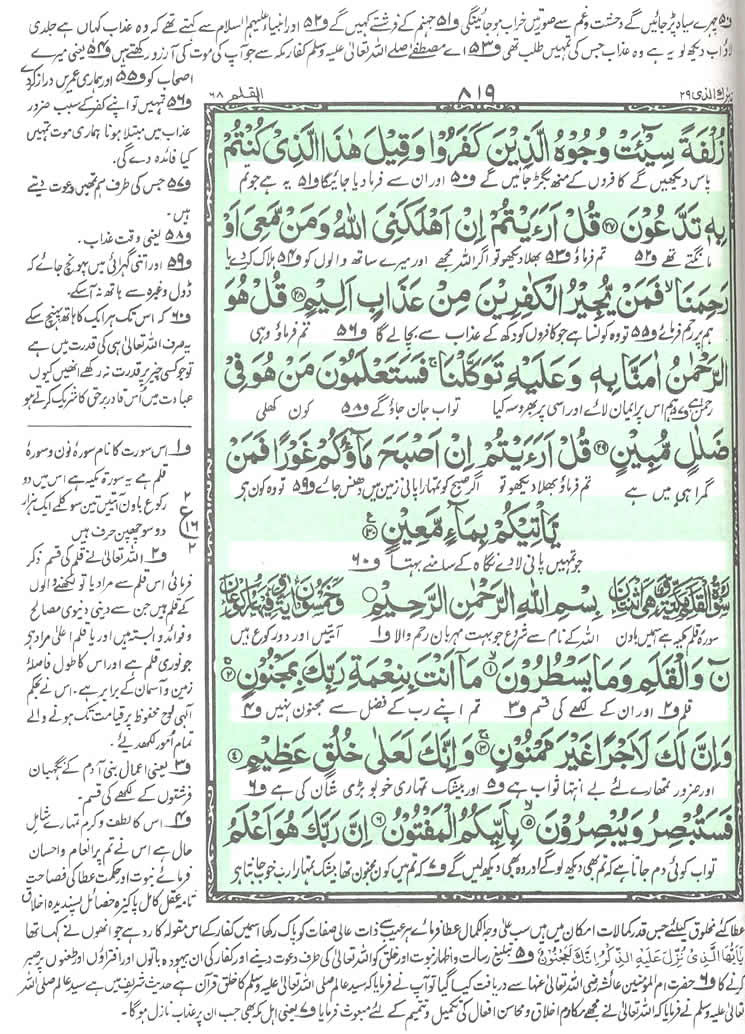 و۵۱ چہرے سیاہ پڑ جائیں گے دہشت و غم سے صورتیں خراب ہو جائینگی و۵۱ جہنم کے فرشتے کہیں گے و۵۲ اور انبیا علیہم السلام سے کہتے تھے کہ وہ عذاب کہاں ہے جلدی
لاؤ اب دیکھ لو یہ ہے وہ عذاب جس کی تمہیں طلب تھی و۵۳ اے مصطفےٰ صلے اللہ تعالیٰ علیہ وسلم کفار مکہ سے جو آپ کی موت کی آرزو رکھتے ہیں و۵۴ یعنی میرے
اصحاب کو و۵۵ اور ہماری عمریں دراز کر دے
و۵۶ تمہیں تو اپنے کفر کے سبب ضرور
عذاب میں مبتلا ہونا ہماری موت تمہیں
کیا فائدہ دے گی۔
و۵۷ جس کی طرف ہم تمھیں دعوت دیتے
ہیں۔
و۵۸ یعنی وقت عذاب۔
و۵۹ اور اتنی گہرائی میں پہونچ جائے کہ
ڈول وغیرہ سے ہاتھ نہ آسکے۔
و۶۰ کہ اس تک ہر ایک کا ہاتھ پہنچ سکے
یہ صرف اللہ تعالیٰ ہی کی قدرت میں ہے
تو جو کسی چیز پر قدرت نہ رکھے انھیں کیوں
عبادت میں اس قادر برحق کا شریک کرتے ہو
تبٰرک الذی ۲۹
۸۱۹
القلم ۶۸
زُلْفَةً سِيْٓـَٔتْ وُجُوْهُ الَّذِيْنَ كَفَرُوْا وَقِيْلَ هٰذَا الَّذِيْ كُنْتُمْ
پاس دیکھیں گے کافروں کے منھ بگڑ جائیں گے و۵۰ اور ان سے فرما دیا جائیگا و۵۱ یہ ہے جو تم
بِهٖ تَدَّعُوْنَ ۝۲۷ قُلْ اَرَءَيْتُمْ اِنْ اَهْلَكَنِيَ اللّٰهُ وَمَنْ مَّعِيَ اَوْ
مانگتے تھے و۵۲ تم فرماؤ و۵۳ بھلا دیکھو تو اگر اللہ مجھے اور میرے ساتھ والوں کو و۵۴ ہلاک کر دے یا
رَحِمَنَا ۙ فَمَنْ يُّجِيْرُ الْكٰفِرِيْنَ مِنْ عَذَابٍ اَلِيْمٍ ۝۲۸ قُلْ هُوَ
ہم پر رحم فرمائے و۵۵ تو وہ کونسا ہے جو کافروں کو دکھ کے عذاب سے بچا لے گا و۵۶ تم فرماؤ وہی
الرَّحْمٰنُ اٰمَنَّا بِهٖ وَعَلَيْهِ تَوَكَّلْنَا ۚ فَسَتَعْلَمُوْنَ مَنْ هُوَ فِيْ
رحمٰن ہے و۵۷ ہم اس پر ایمان لائے اور اسی پر بھروسہ کیا تو اب جان جاؤ گے و۵۸ کون کھلی
ضَلٰلٍ مُّبِيْنٍ ۝۲۹ قُلْ اَرَءَيْتُمْ اِنْ اَصْبَحَ مَآؤُكُمْ غَوْرًا فَمَنْ
گمراہی میں ہے تم فرماؤ بھلا دیکھو تو اگر صبح کو تمہارا پانی زمین میں دھنس جائے و۵۹ تو وہ کون ہے
يَّاْتِيْكُمْ بِمَآءٍ مَّعِيْنٍ ۝۳۰
جو تمہیں پانی لا دے نگاہ کے سامنے بہتا و۶۰
بِسْمِ اللّٰهِ الرَّحْمٰنِ الرَّحِيْمِ
سورۂ قلم مکیہ ہے اسمیں باون اللہ کے نام سے شروع جو بہت مہربان رحم والا و۱ آیتیں اور دو رکوع ہیں
نٓ وَالْقَلَمِ وَمَا يَسْطُرُوْنَ ۝۱ مَآ اَنْتَ بِنِعْمَةِ رَبِّكَ بِمَجْنُوْنٍ ۝۲
قلم و۲ اور ان کے لکھے کی قسم و۳ تم اپنے رب کے فضل سے مجنون نہیں و۴
وَاِنَّ لَكَ لَاَجْرًا غَيْرَ مَمْنُوْنٍ ۝۳ وَاِنَّكَ لَعَلٰى خُلُقٍ عَظِيْمٍ ۝۴
اور ضرور تمھارے لئے بے انتہا ثواب ہے و۵ اور بیشک تمہاری خو بو بڑی شان کی ہے و۶
فَسَتُبْصِرُ وَيُبْصِرُوْنَ ۝۵ بِاَيِّىكُمُ الْمَفْتُوْنُ ۝۶ اِنَّ رَبَّكَ هُوَ اَعْلَمُ
تو اب کوئی دم جاتا ہے کہ تم بھی دیکھ لو گے اور وہ بھی دیکھ لیں گے و۷ کہ تم میں کون مجنون تھا بیشک تمہارا رب خوب جانتا ہے
و۱ اس سورت کا نام سورۂ نون و سورۂ
قلم ہے یہ سورۃ مکیہ ہے اس میں دو
رکوع باون آیتیں تین سو کلمے ایک ہزار
دو سو چھپن حرف ہیں
و۲ اللہ تعالیٰ نے قلم کی قسم ذکر
فرمائی اس قلم سے مراد یا تو لکھنے والوں
کے قلم ہیں جن سے دینی دنیوی مصالح
و فوائد وابستہ ہیں اور یا قلم اعلیٰ مراد ہے
جو نوری قلم ہے اور اس کا طول فاصلۂ
زمین و آسمان کے برابر ہے۔ اس نے بحکم
الٰہی لوح محفوظ پر قیامت تک ہونے والے
تمام امور لکھ دیئے۔
و۳ یعنی اعمال بنی آدم کے نگہبان
فرشتوں کے لکھے کی قسم۔
و۴ اس کا لطف و کرم تمہارے شامل
حال ہے اس نے تم پر انعام و احسان
فرمائے نبوت اور حکمت عطا کی فصاحت
تامہ عقل کامل پاکیزہ خصائل پسندیدہ اخلاق
عطا کئے مخلوق کیلئے جس قدر کمالات امکان میں ہیں سب علیٰ وجہ الکمال عطا فرمائے ہر عیب سے ذات عالی صفات کو پاک رکھا اسمیں کفار کے اس مقولہ کا رد ہے جو انھوں نے کہا تھا
يٰٓاَيُّهَا الَّذِيْ نُزِّلَ عَلَيْهِ الذِّكْرُ اِنَّكَ لَمَجْنُوْنٌ و۵ تبلیغ رسالت و اظہار نبوت اور خلق کو اللہ تعالیٰ کی طرف دعوت دینے اور کفار کی ان بیہودہ باتوں اور افتراؤں اور طعنوں پر صبر
کرنے کا و۶ حضرت ام المومنین عائشہ رضی اللہ تعالیٰ عنہا سے دریافت کیا گیا تو آپ نے فرمایا کہ سید عالم صلی اللہ تعالیٰ علیہ وسلم کا خلق قرآن ہے حدیث شریف میں ہے سید عالم صلی اللہ
تعالیٰ علیہ وسلم نے فرمایا کہ اللہ تعالیٰ نے مجھے مکارم اخلاق و محاسن افعال کی تکمیل و تتمیم کے لئے مبعوث فرمایا و۷ یعنی اہل مکہ بھی جب ان پر عذاب نازل ہوگا۔